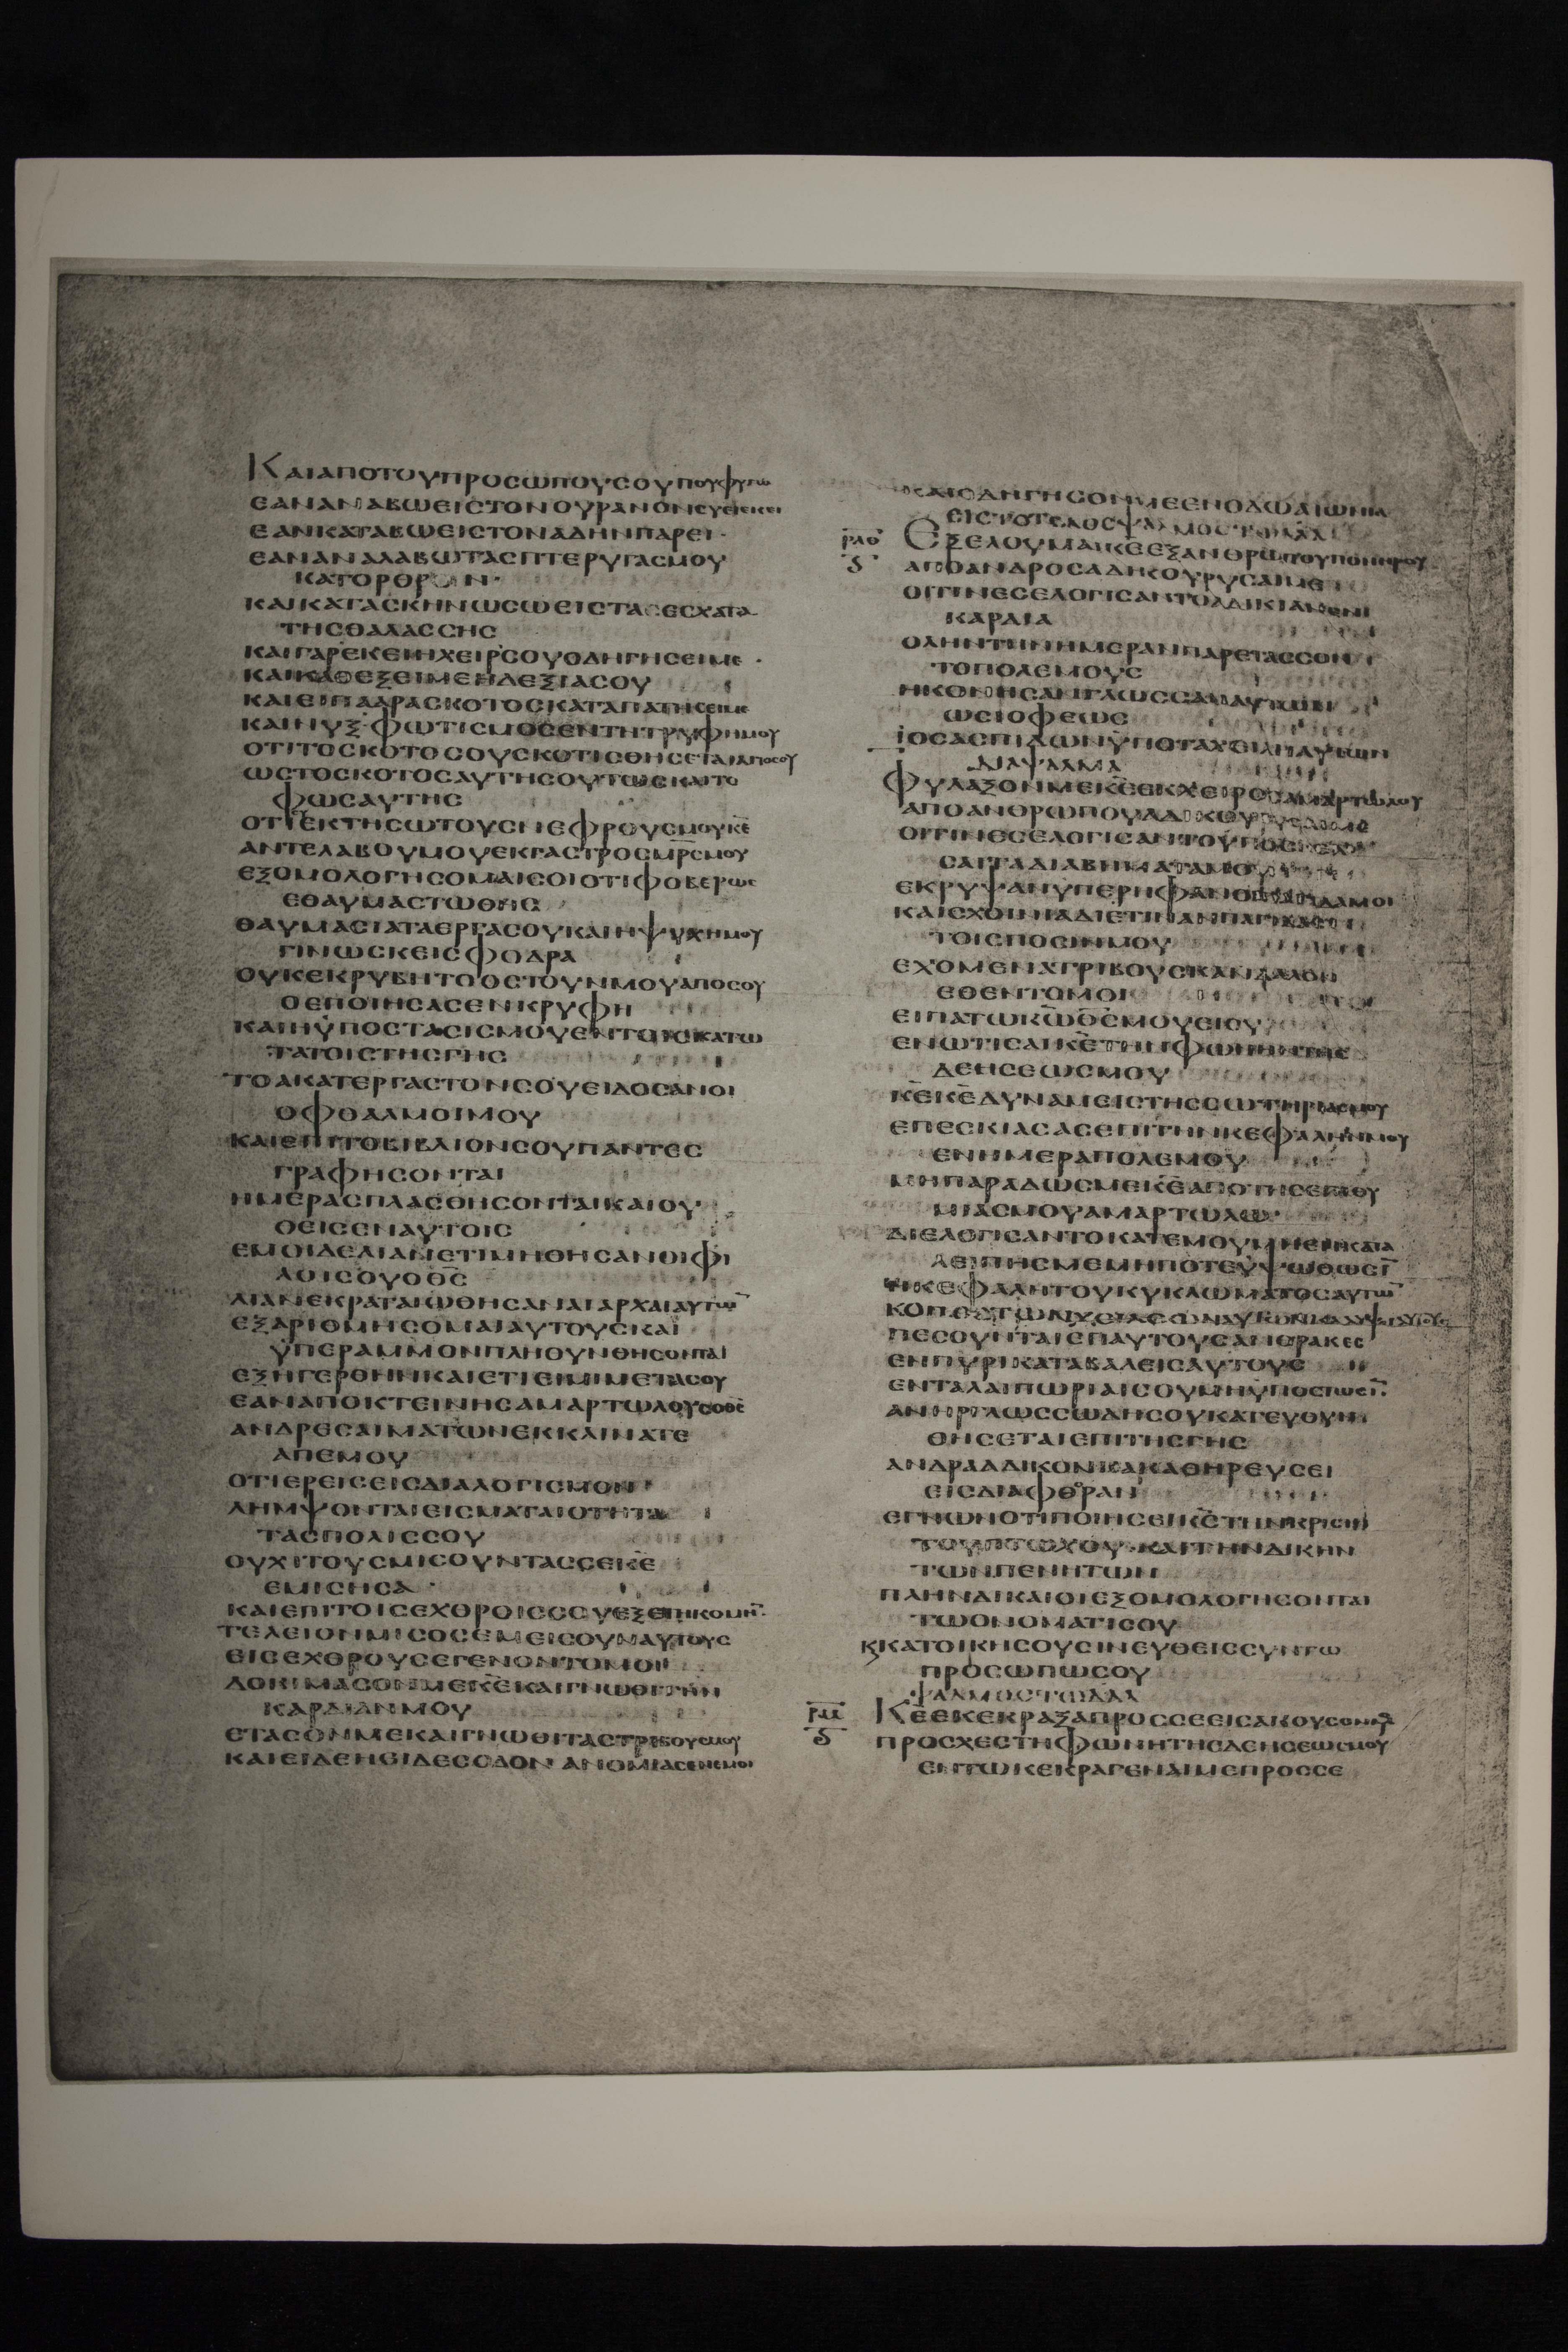 ΚΑΙΑΠΟΤΟΥΠΡΟСΩΠΟΥСΟΥΠΟΥΦΥΓΩ
ΕΑΝΑΝΑΒΩΕΙСΤΟΝΟΥΡΑΝΟΝСΥΕΙΕΚΕΙ
ΕΑΝΚΑΤΑΒΩΕΙСΤΟΝΑΔΗΝΠΑΡΕΙ·
ΕΑΝΑΝΑΛΑΒΩΤΑСΠΤΕΡΥΓΑСΜΟΥ
ΚΑΤΟΡΘΡΟΝ·
ΚΑΙΚΑΤΑСΚΗΝΩСΩΕΙСΤΑΕСΧΑΤΑ
ΤΗСΘΑΛΑССΗС
ΚΑΙΓΑΡΕΚΕΙΗΧΕΙΡСΟΥΟΔΗΓΗСΕΙΜΕ·
ΚΑΙΚΑΘΕΞΕΙΜΕΗΔΕΞΙΑСΟΥ
ΚΑΙΕΙΠΑΑΡΑСΚΟΤΟСΚΑΤΑΠΑΤΗСΕΙΜΕ
ΚΑΙΝΥΞ·ΦΩΤΙСΜΟСΕΝΤΗΤΡΥΦΗΜΟΥ
ΟΤΙΤΟСΚΟΤΟСΟΥСΚΟΤΙСΘΗСΕΤΑΙΑΠΟСΟΥ
ΩСΤΟСΚΟΤΟСΑΥΤΗСΟΥΤΩСΚΑΙΤΟ
ΦΩСΑΥΤΗС
ΟΤΙΕΚΤΗСΩΤΟΥСΝΕΦΡΟΥСΜΟΥΚ̅Ε̅
ΑΝΤΕΛΑΒΟΥΜΟΥΕΚΓΑСΤΡΟСΜ̅Ρ̅С̅ΜΟΥ
ΕΞΟΜΟΛΟΓΗСΟΜΑΙСΟΙΟΤΙΦΟΒΕΡΩС
ΕΘΑΥΜΑСΤΩΘΗС
ΘΑΥΜΑСΙΑΤΑΕΡΓΑСΟΥΚΑΙΗΨΥΧΗΜΟΥ
ΓΙΝΩСΚΕΙСΦΟΔΡΑ
ΟΥΚΕΚΡΥΒΗΤΟΟСΤΟΥΝΜΟΥΑΠΟСΟΥ
ΟΕΠΟΙΗСΑСΕΝΚΡΥΦΗ
ΚΑΙΗΫΠΟСΤΑСΙСΜΟΥΕΝΤΟΙСΚΑΤΩ
ΤΑΤΟΙСΤΗСΓΗС
ΤΟΑΚΑΤΕΡΓΑСΤΟΝСΟΥΕΙΔΟСΑΝΟΙ
ΟΦΘΑΛΜΟΙΜΟΥ
ΚΑΙΕΠΙΤΟΒΙΒΛΙΟΝСΟΥΠΑΝΤΕС
ΓΡΑΦΗСΟΝΤΑΙ
ΗΜΕΡΑСΠΛΑСΘΗСΟΝΤΑΙΚΑΙΟΥ
ΘΕΙСΕΝΑΥΤΟΙС
ΕΜΟΙΔΕΛΙΑΝΕΤΙΜΗΘΗСΑΝΟΙΦΙ
ΛΟΙСΟΥΟΘ̅С̅
ΛΙΑΝΕΚΡΑΤΑΙΩΘΗСΑΝΑΙΑΡΧΑΙΑΥΤΩ̅
ΕΞΑΡΙΘΜΗСΟΜΑΙΑΥΤΟΥСΚΑΙ
ΫΠΕΡΑΜΜΟΝΠΛΗΘΥΝΘΗСΟΝΤΑΙ
ΕΞΗΓΕΡΘΗΝΚΑΙΕΤΙΕΙΜΙΜΕΤΑСΟΥ
ΕΑΝΑΠΟΚΤΕΙΝΗСΑΜΑΡΤΩΛΟΥСΟΘ̅С̅
ΑΝΔΡΕСΑΙΜΑΤΩΝΕΚΚΛΙΝΑΤΕ
ΑΠΕΜΟΥ
ΟΤΙΕΡΕΙСΕΙСΔΙΑΛΟΓΙСΜΟΝ
ΛΗΜΨΟΝΤΑΙΕΙСΜΑΤΑΙΟΤΗΤΑ
ΤΑСΠΟΛΙССΟΥ
ΟΥΧΙΤΟΥСΜΙСΟΥΝΤΑССΕΚ̅Ε̅
ΕΜΙСΗСΑ·
ΚΑΙΕΠΙΤΟΙСΕΧΘΡΟΙССΟΥΕΞΕΤΗΚΟΜΗ̅
ΤΕΛΕΙΟΝΜΙСΟСΕΜΕΙСΟΥΝΑΥΤΟΥС
ΕΙСΕΧΘΡΟΥСΕΓΕΝΟΝΤΟΜΟΙ
ΔΟΚΙΜΑСΟΝΜΕΚ̅Ε̅ΚΑΙΓΝΩΘΙΤΗΝ
ΚΑΡΔΙΑΝΜΟΥ
ΕΤΑСΟΝΜΕΚΑΙΓΝΩΘΙΤΑСΤΡΙΒΟΥСΜΟΥ
ΚΑΙΕΙΔΕΗΕΙΔΕСΟΔΟΝΑΝΟΜΙΑСΕΝΕΜΟΙ
ΚΑΙΟΔΗΓΗСΟΝΜΕΕΝΟΔΩΑΙΩΝΙΑ
ΕΙСΤΟΤΕΛΟСΨΑΛΜΟСΤΩΔΑΔ
Ρ̅Λ̅Θ̅ ΕΞΕΛΟΥΜΑΙΚ̅Ε̅ΕΞΑΝΘΡΩΠΟΥΠΟΝΗΡΟΥ
ΑΠΟΑΝΔΡΟСΑΔΙΚΟΥΡΥСΑΙΜΕ
ΟΙΤΙΝΕСΕΛΟΓΙСΑΝΤΟΑΔΙΚΙΑΝΕΝ
ΚΑΡΔΙΑ
ΟΛΗΝΤΗΝΗΜΕΡΑΝΠΑΡΕΤΑССΟΝ
ΤΟΠΟΛΕΜΟΥС
ΗΚΟΝΗСΑΝΓΛΩССΑΝΑΥΤΩΝ
ΩСΕΙΟΦΕΩС
ΪΟСΑСΠΙΔΩΝΫΠΟΤΑΧΕΙΛΗΑΥΤΩΝ
ΔΙΑΨΑΛΜΑ
ΦΥΛΑΞΟΝΜΕΚ̅Ε̅ΕΚΧΕΙΡΟСΑΜΑΡΤΩΛΟΥ
ΑΠΟΑΝΘΡΩΠΟΥΑΔΙΚΟΥ
ΟΙΤΙΝΕСΕΛΟΓΙСΑΝΤΟΫΠΟСΚΕΛΙ
СΑΙΤΑΔΙΑΒΗΜΑΤΑΜΟΥ
ΕΚΡΥΨΑΝΫΠΕΡΗΦΑΝΟΙΠΑΓΙΔΑΜΟΙ
ΚΑΙСΧΟΙΝΙΑΔΙΕΤΙΝΑΝΠΑΓΙΔΑС
ΤΟΙСΠΟСΙΝΜΟΥ
ΕΧΟΜΕΝΑΤΡΙΒΟΥСΚΑΝΔΑΛΟΝ
ΕΘΕΝΤΟΜΟΙ
ΕΙΠΑΤΩΚ̅Ω̅Θ̅С̅ΜΟΥΕΙСΥ
ΕΝΩΤΙСΑΙΚ̅Ε̅ΤΗΝΦΩΝΗΝΤΗС
ΔΕΗСΕΩСΜΟΥ
Κ̅Ε̅Κ̅Ε̅ΔΥΝΑΜΕΙСΤΗССΩΤΗΡΙΑСΜΟΥ
ΕΠΕСΚΙΑСΑСΕΠΙΤΗΝΚΕΦΑΛΗΝΜΟΥ
ΕΝΗΜΕΡΑΠΟΛΕΜΟΥ
ΜΗΠΑΡΑΔΩСΜΕΚ̅Ε̅ΑΠΟΤΗСΕΠΙΘΥ
ΜΙΑСΜΟΥΑΜΑΡΤΩΛΩ·
ΔΙΕΛΟΓΙСΑΝΤΟΚΑΤΕΜΟΥΜΗΕΝΚΑΤΑ
ΛΕΙΠΗСΜΕΜΗΠΟΤΕΫΨΩΘΩСΙ̅
ΗΚΕΦΑΛΗΤΟΥΚΥΚΛΩΜΑΤΟСΑΥΤΩ̅
ΚΟΠΟСΤΩΝΧΕΙΛΕΩΝΑΥΤΩΝΚΑΛΥΨΕΙΑΥΤΟΥС
ΠΕСΟΥΝΤΑΙΕΠΑΥΤΟΥСΑΝΘΡΑΚΕС
ΕΝΠΥΡΙΚΑΤΑΒΑΛΕΙСΑΥΤΟΥС
ΕΝΤΑΛΑΙΠΩΡΙΑΙСΟΥΜΗΫΠΟСΤΩСΙ̅
ΑΝΗΡΓΛΩССΩΔΗСΟΥΚΑΤΕΥΘΥΝ
ΘΗСΕΤΑΙΕΠΙΤΗСΓΗС
ΑΝΔΡΑΑΔΙΚΟΝΚΑΚΑΘΗΡΕΥСΕΙ
ΕΙСΔΙΑΦΘΟΡΑΝ
ΕΓΝΩΝΟΤΙΠΟΙΗСΕΙΚ̅С̅ΤΗΝΚΡΙСΙΝ
ΤΟΥΠΤΩΧΟΥ·ΚΑΙΤΗΝΔΙΚΗΝ
ΤΩΝΠΕΝΗΤΩΝ
ΠΛΗΝΔΙΚΑΙΟΙΕΞΟΜΟΛΟΓΗСΟΝΤΑΙ
ΤΩΟΝΟΜΑΤΙСΟΥ
ϗΚΑΤΟΙΚΗСΟΥСΙΝΕΥΘΕΙССΥΝΤΩ
ΠΡΟСΩΠΩСΟΥ
ΨΑΛΜΟСΤΩΔΑΔ
Ρ̅Μ̅ Κ̅Ε̅ΕΚΕΚΡΑΞΑΠΡΟССΕΕΙСΑΚΟΥСΟΝΜΟΥ
ΠΡΟСΧΕСΤΗΦΩΝΗΤΗСΔΕΗСΕΩСΜΟΥ
ΕΝΤΩΚΕΚΡΑΓΕΝΑΙΜΕΠΡΟССΕ